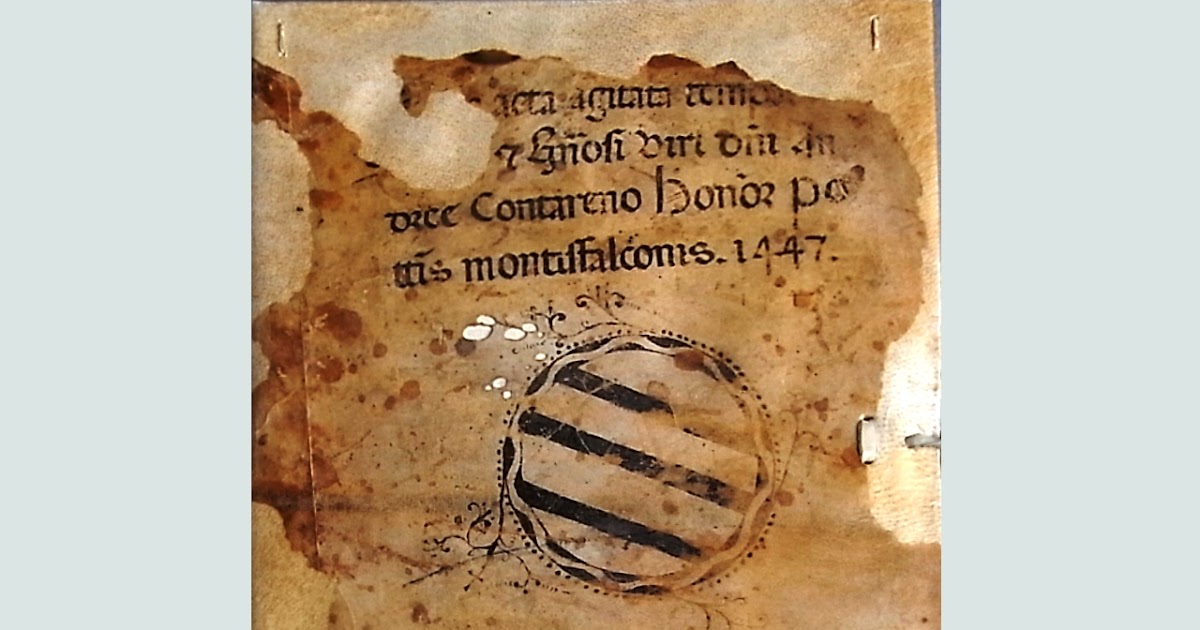 acta agitata tempo
⁊ Gn̄osi viri dn̄i An
dree Contareno honor po
ttis̄ montisfalconis. 1447.